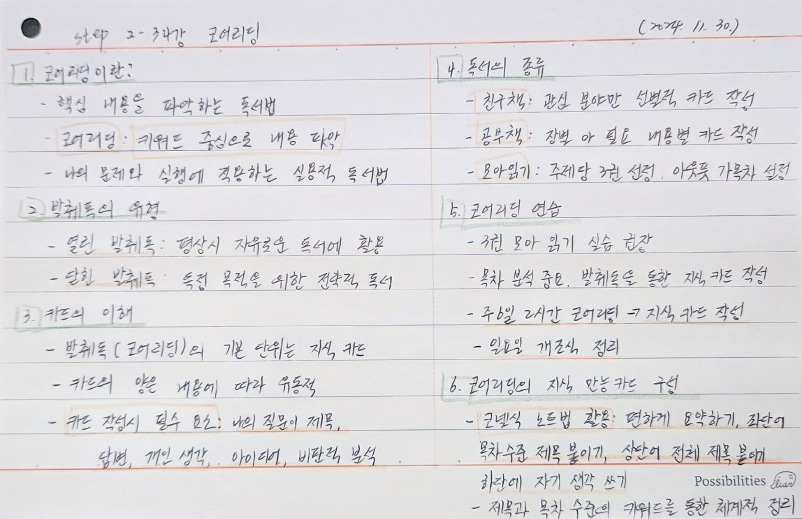 step 2-3 4강 코어리딩
(2024. 11. 30.)
1. 코어리딩이란?
- 핵심 내용을 파악하는 독서법
- 코어리딩: 키워드 중심으로 내용 파악
- 나의 문제와 실행에 적용하는 실용적 독서법
2. 발췌독의 유형
- 열린 발췌독: 평상시 자유로운 독서에 활용
- 닫힌 발췌독: 특정 목적을 위한 전략적 독서
3. 카드의 이해
- 발췌독(코어리딩)의 기본 단위는 지식 카드
- 카드의 양은 내용에 따라 유동적
- 카드 작성시 필수 요소: 나의 질문이 제목,
답변, 개인 생각, 아이디어, 비판적 분석
4. 독서의 종류
- 친구책: 관심 분야만 선별적 카드 작성
- 공부책: 장별 아 필요 내용별 카드 작성
- 모아읽기: 주제당 3권 선정, 아웃풋 가목차 설정
5. 코어리딩 연습
- 3권 모아 읽기 실습 권장
- 목차 분석 중요, 발췌독을 통한 지식 카드 작성
- 주6일 2시간 코어리딩 → 지식 카드 작성
- 일요일 개조식 정리
6. 코어리딩의 지식 만능카드 구성
- 코넬식 노트법 활용: 편하게 요약하기, 좌단에
목차수준 제목 붙이기, 상단에 전체 제목 붙이기
하단에 자기 생각 쓰기
Possibilities
- 제목과 목차 수준의 키워드를 통한 체계적 정리